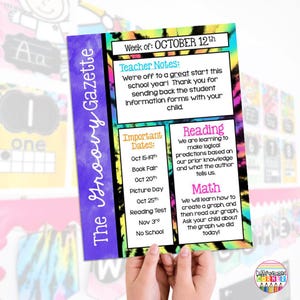 The Groovy Gazette
Week of: OCTOBER 12th
Teacher Notes:
We're off to a great start this
school year! Thank you for
sending back the student
information forms with your
child.
Important
Dates:
Oct 15-19th
Book Fair
Oct 20th
Picture Day
Oct 25th
Reading Test
Nov 3rd
No School
Reading
We are learning to
make logical
predictions based on
our prior knowledge
and what the author
tells us.
Math
We will learn how to
create a graph, and
then read our graph.
Ask your child about
the graph we did
today!
one